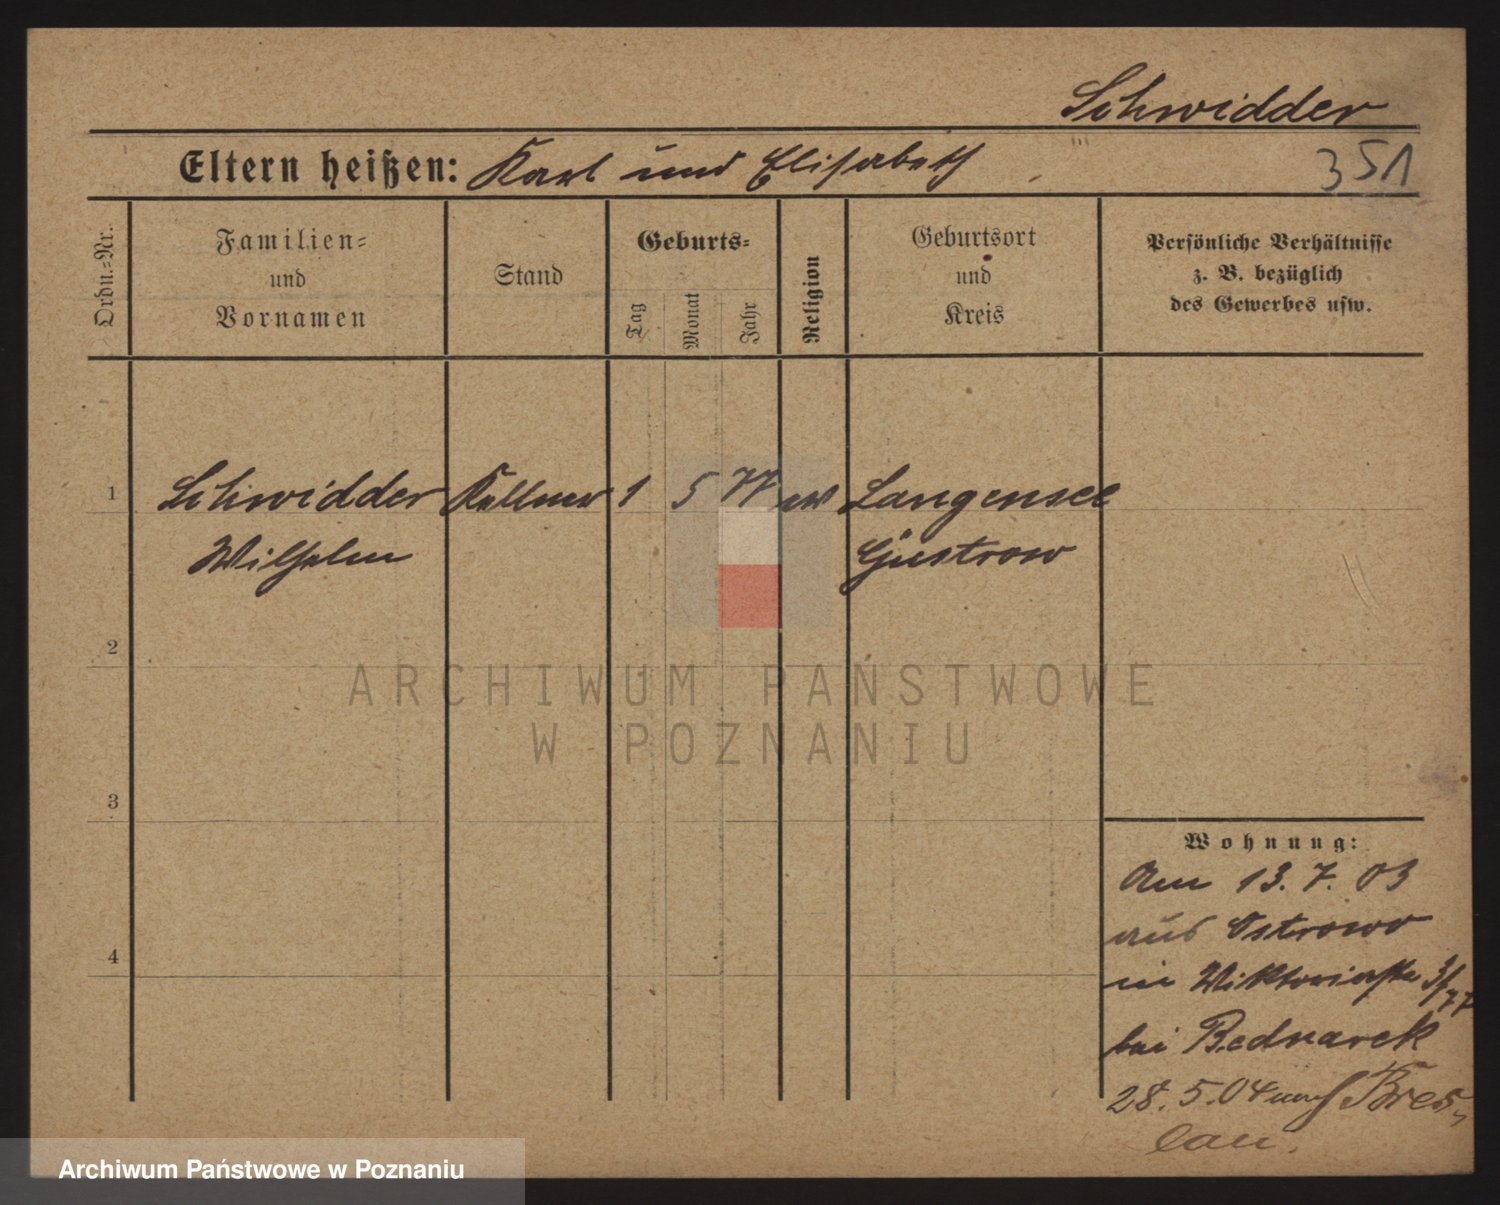 Schwidder
Eltern heißen: Karl und Elisabeth
351
Ordn.=Nr.
Familien=
und
Vornamen
Stand
Geburts=
Tag
Monat
Jahr
Religion
Geburtsort
und
Kreis
Persönliche Verhältnisse
z. B. bezüglich
des Gewerbes usw.
1 Schwidder Kellner 1 5 77 ew Langensee
Wilhelm Güstrow
2
ARCHIWUM PAŃSTWOWE
W POZNANIU
3
Wohnung:
Am 13.7.03
aus Ostrowo
in Wiktoriastr
4
bei Bednarek
28.5.04 nach Bres-
lau.
Archiwum Państwowe w Poznaniu